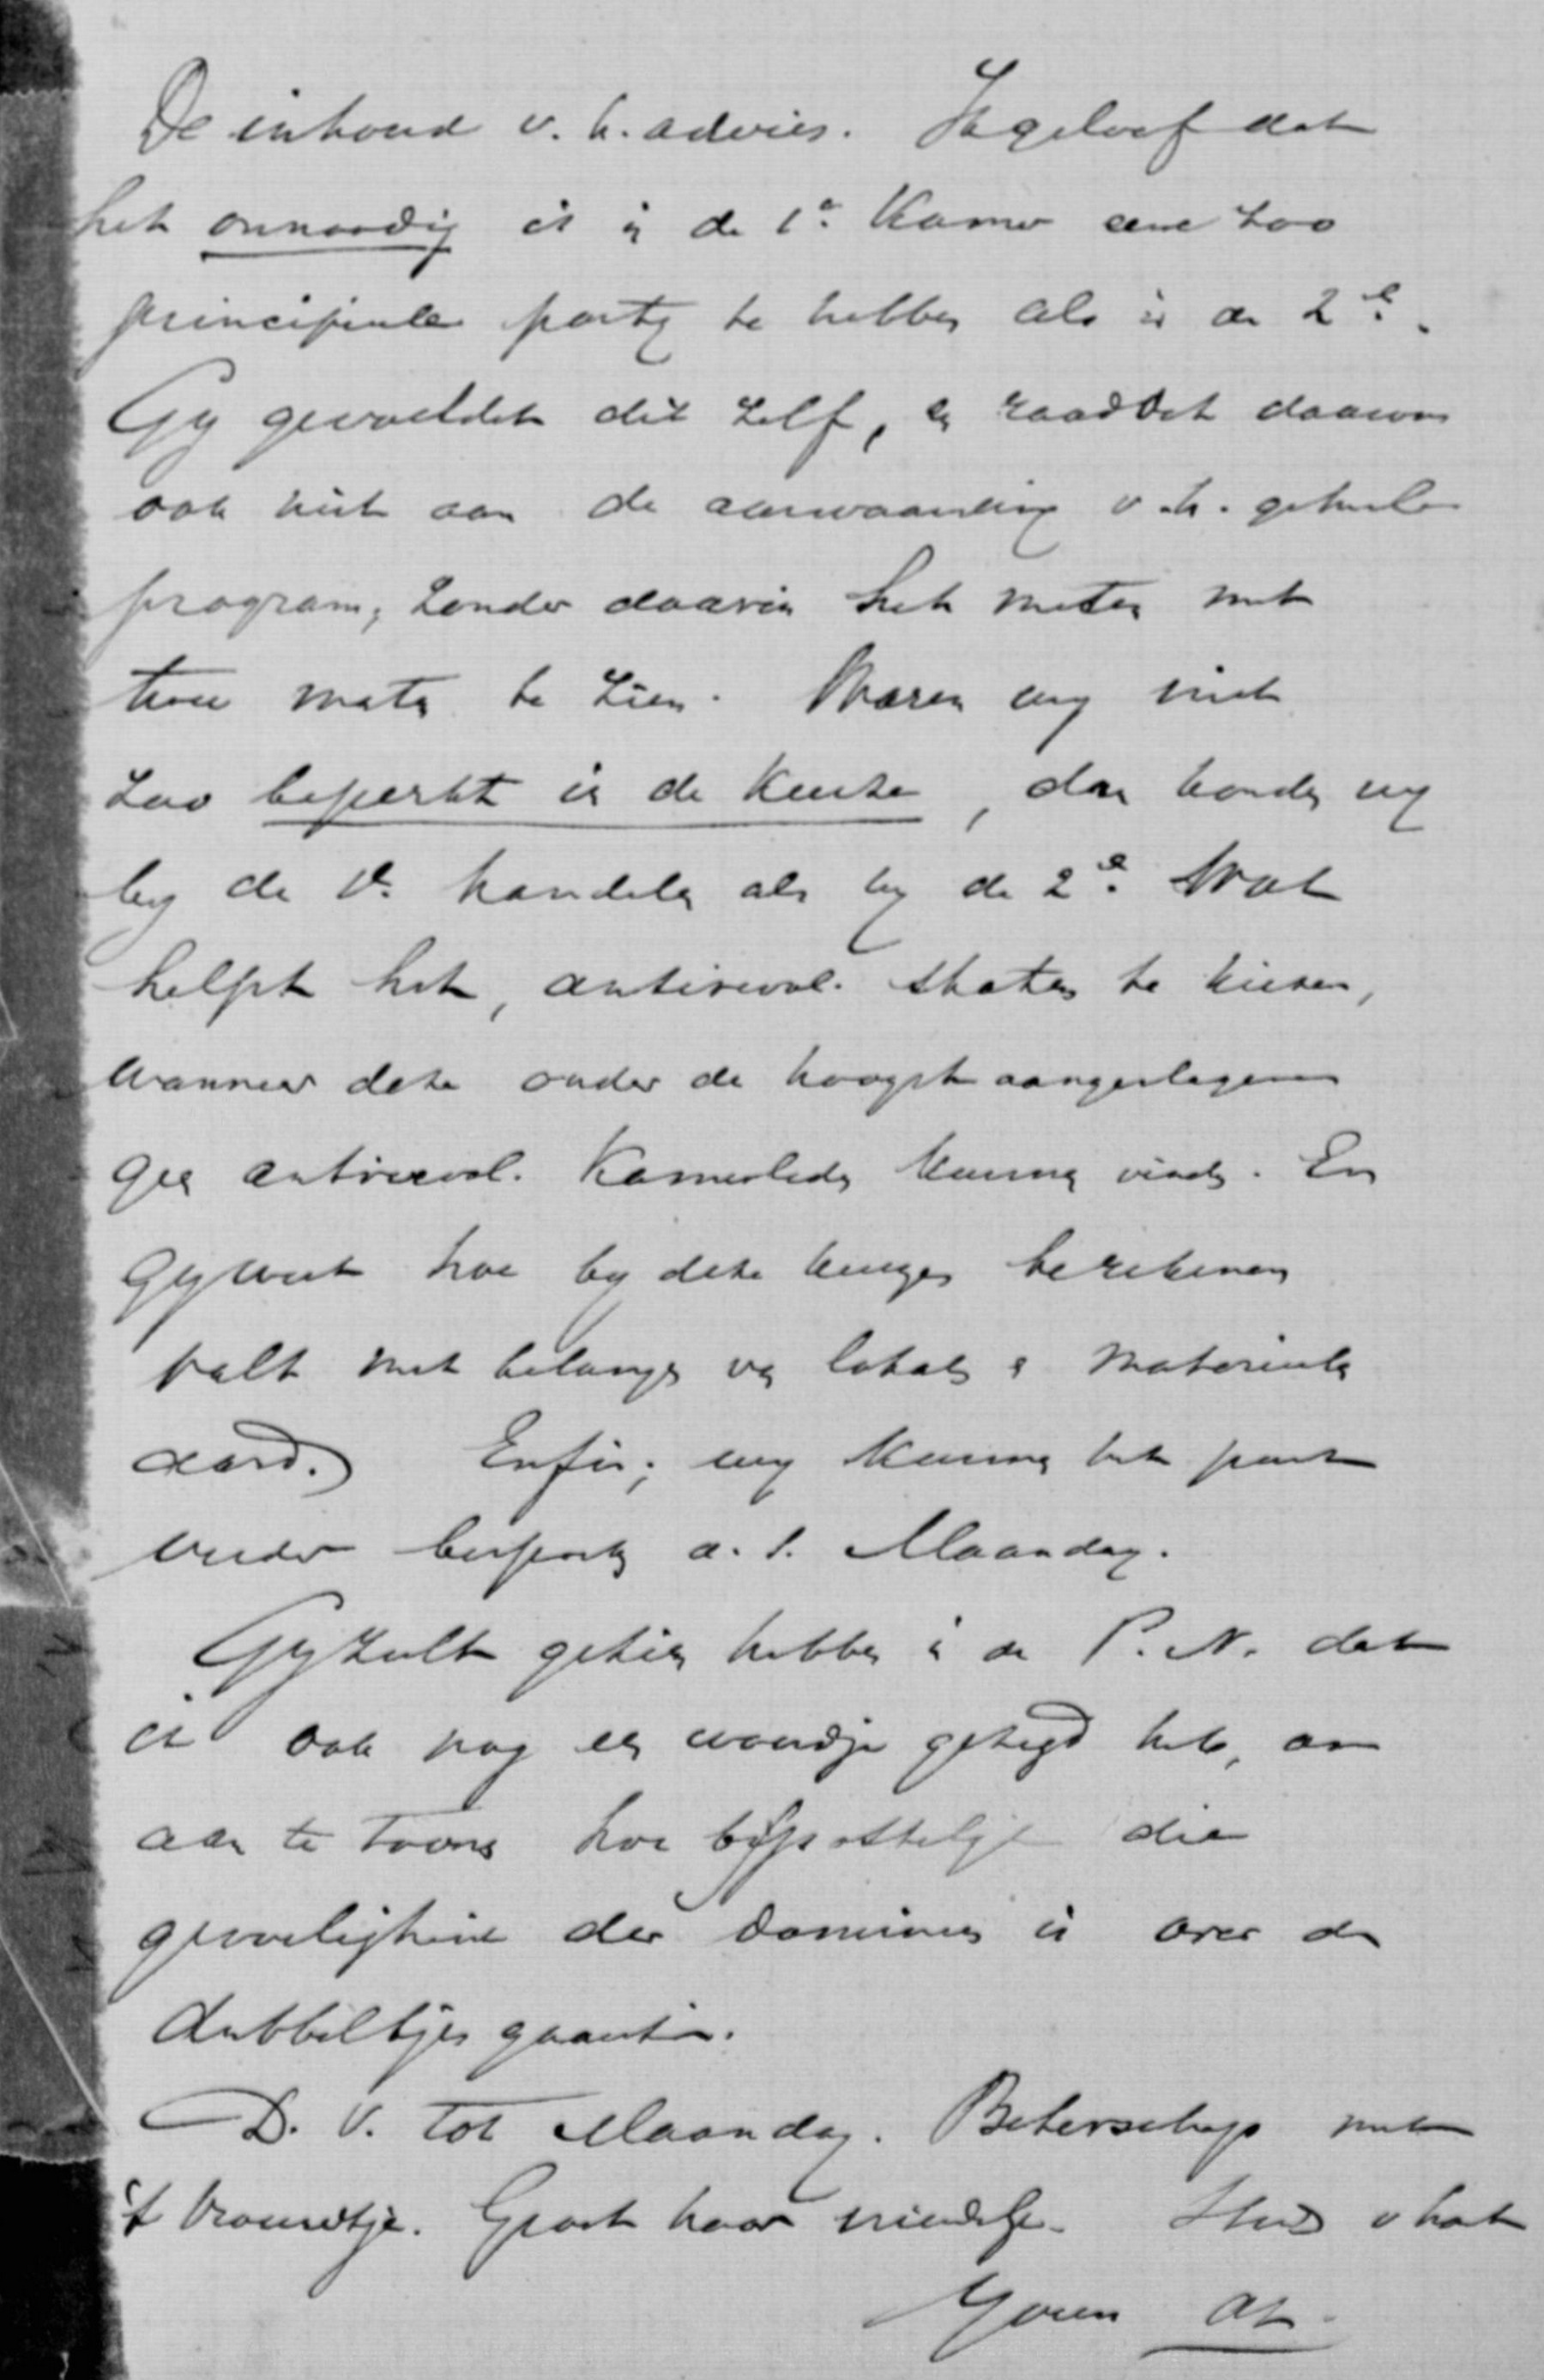 De inhoud v. h. advies. Ik geloof dat
het onnoodig is in de 1e Kamer eene zoo
principieele party te hebben als in de 2e.
Gy gevoeldet dit zelf, en raaddet daarom
ook niet aan de aanvaarding v. h. geheele
program, zonder daarin het meten met
twee maten te zien. Waren wy niet
zoo beperkt in de keuze, dan konden wy
by de 1e handelen als by de 2e. Wat
helpt het, antirevol. Staten te kiezen,
wanneer deze onder de hoogst aangeslagenen
geen antirevol. Kamerleden kunnen vinden. En
Gy weet hoe by deze keuzen te rekenen
valt met belangen van lokalen en materieelen
aard.) Enfin; wy kunnen het punt
nader bespreken a. s. Maandag.
Gy zult gezien hebben in de P. N. dat
ik ook nog een woordje gezegd heb, om
aan te toonen hoe bespottelyk die
gevoeligheid der dominees is over de
dubbeltjes quaestie.
D. V. tot Maandag. Beterschap met
't vrouwtje. Groet haar vriendelyk. Steeds v hart
Youn